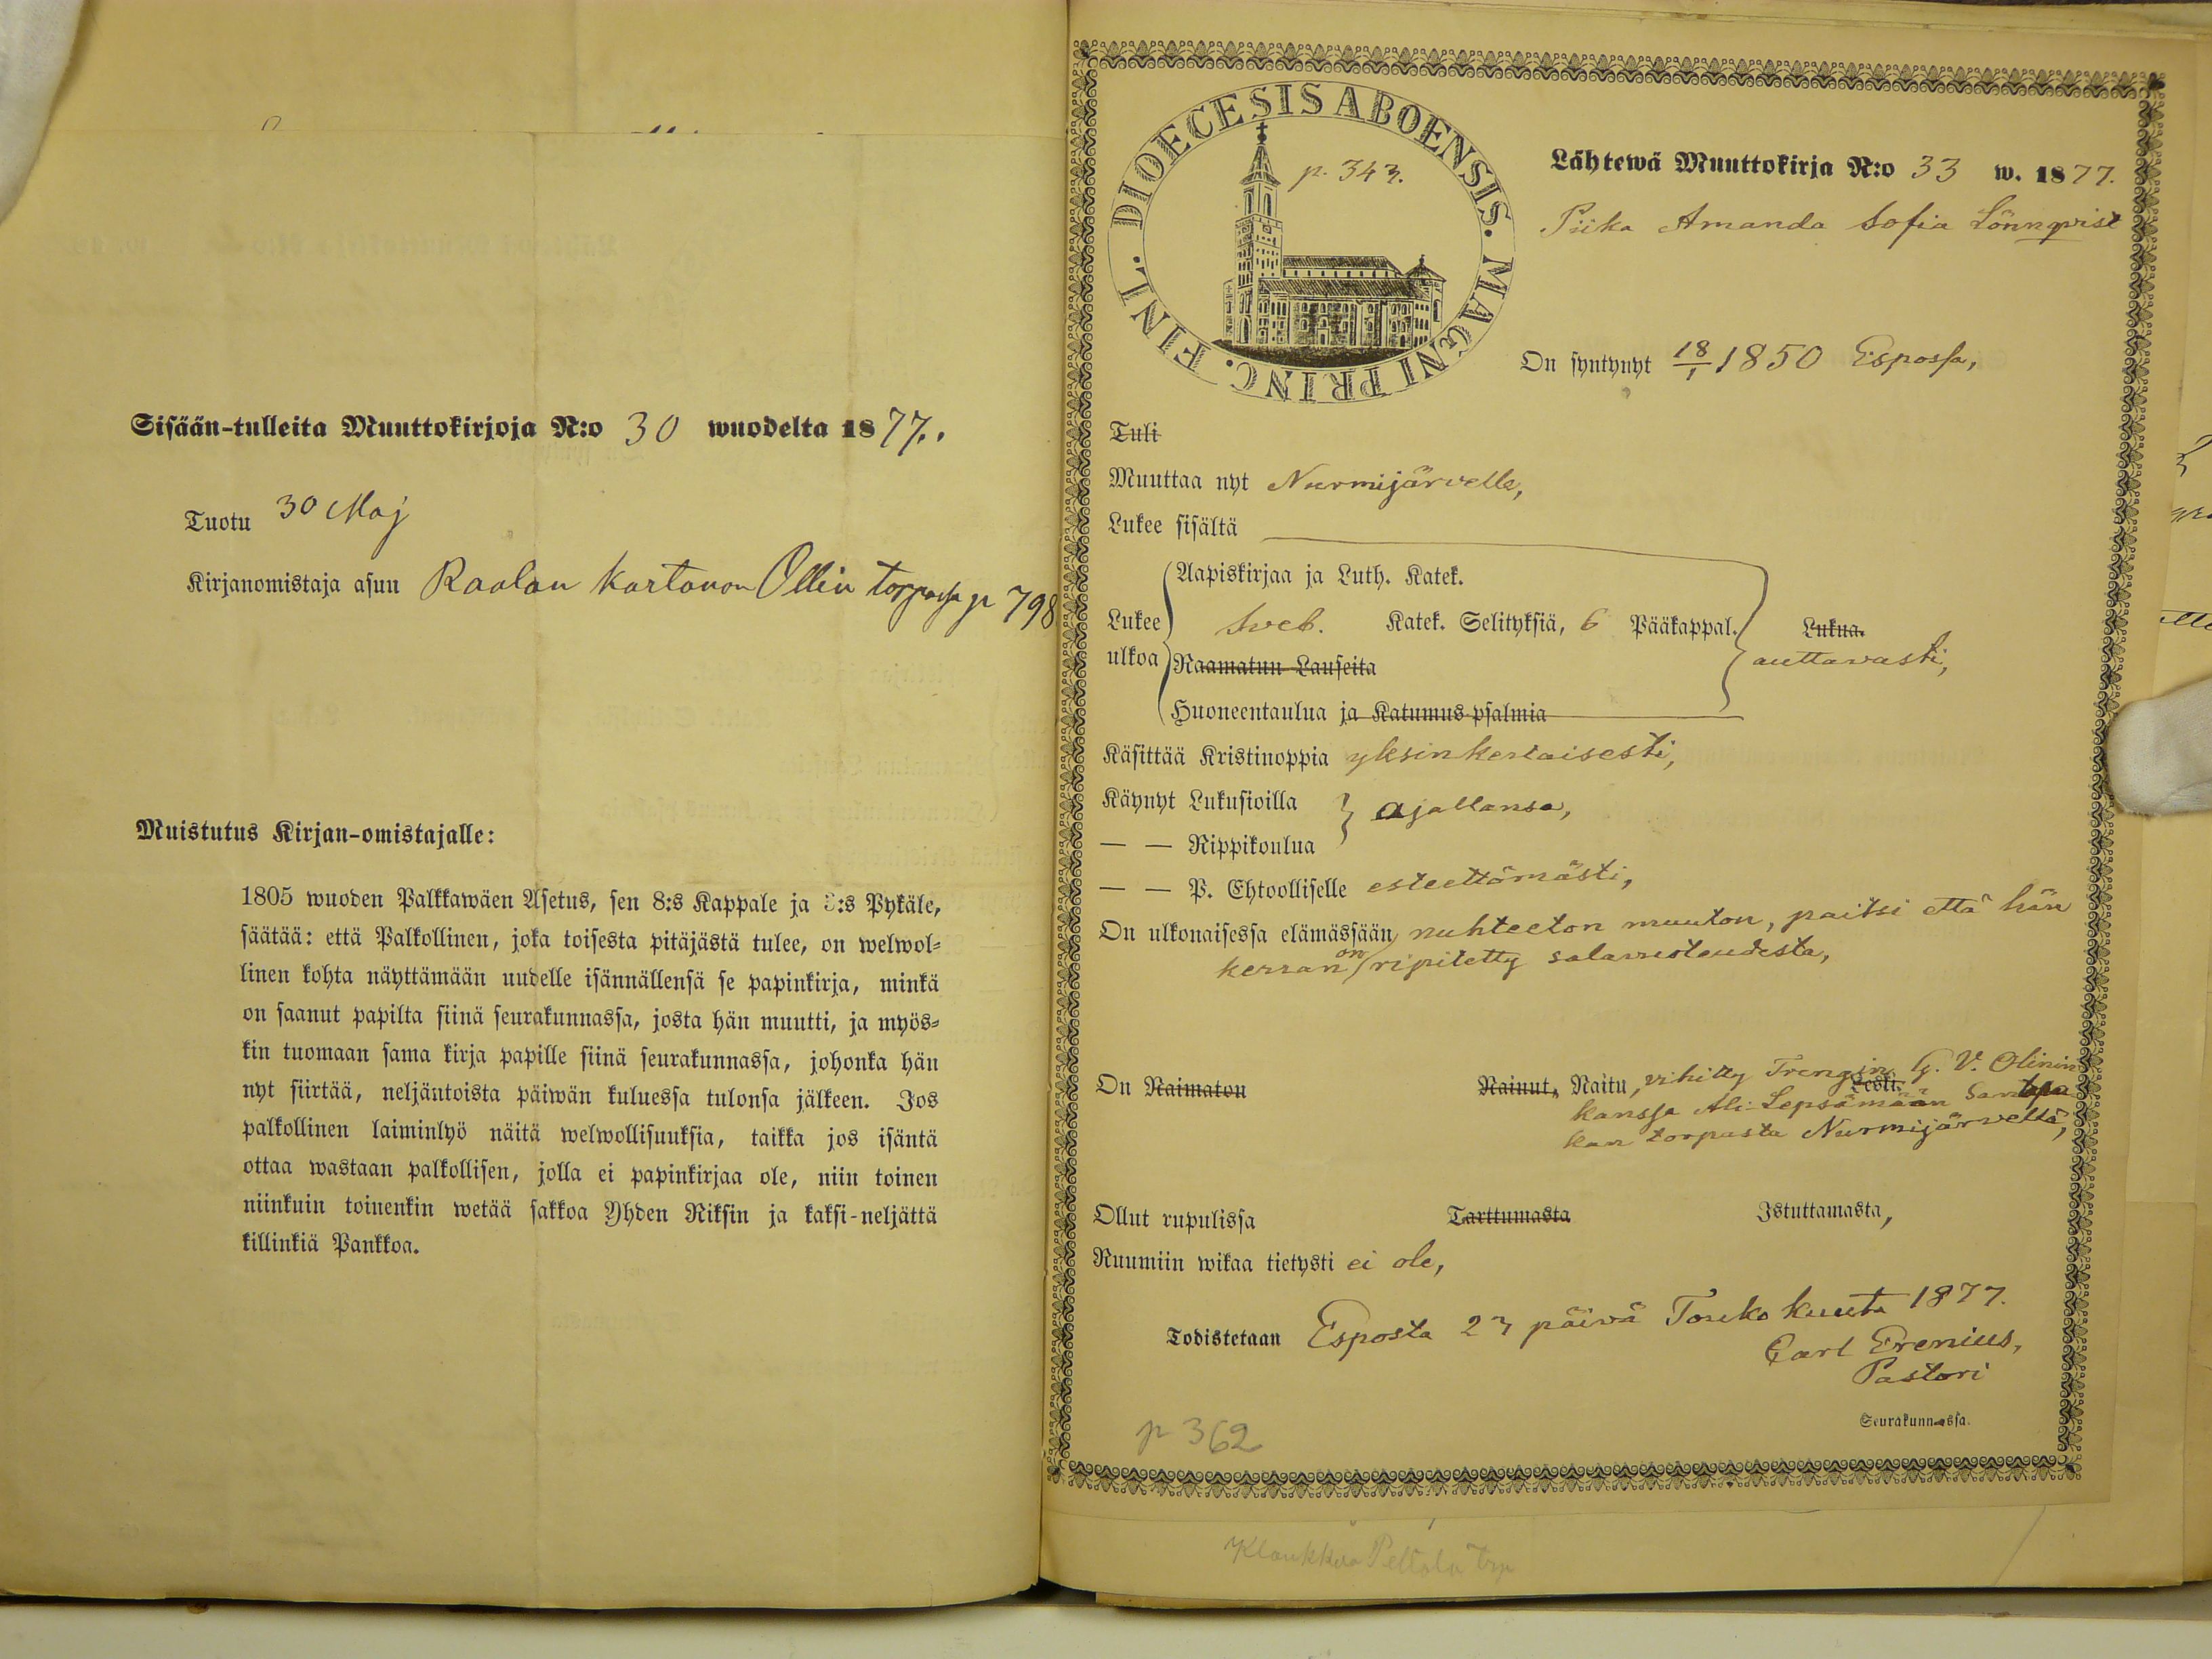 Sisään-tulleita Muuttokirjoja N:o 30 wuodelta 1877.
Tuotu 30 Maj
Kirjanomistaja asuu Raalan kartanon Ollin torpassa p 798
Muistutus Kirjan-omistajalle:
1805 wuoden Palkkawäen Asetus, sen 8:s Kappale ja :s Pykäle,
säätää: että Palkollinen, joka toisesta pitäjästä tulee, on welwol-
linen kohta näyttämään uudelle isännällensä se papinkirja, minkä
on saanut papilta siinä seurakunnassa, josta hän muutti, ja myös-
kin tuomaan sama kirja papille siinä seurakunnassa, johonka hän
nyt siirtää, neljäntoista päiwän kuluessa tulonsa jälkeen. Jos
palkollinen laiminlyö näitä welwollisuuksia, taikka jos isäntä
ottaa wastaan palkollisen, jolla ei papinkirjaa ole, niin toinen
niinkuin toinenkin wetää sakkoa Yhden Riksin ja kaksi-neljättä
killinkiä Pankkoa.
FINL. DIOECESIS ABOENSIS. MAGNI PRINC.
p. 343.
Lähtewä Muuttokirja N:o 33 w. 1877.
Piika Amanda Sofia Lönnqvist
On syntynyt 18/1 1850 Espossa,
Tuli
Muuttaa nyt Nurmijärvelle,
Lukee sisältä
Aapiskirjaa ja Luth. Katek.
Lukee ulkoa Sveb. Katek. Selityksiä, 6 Pääkappal. Lukua.
Raamatun Lauseita auttavasti,
Huoneentaulua ja Katumus-psalmia
Käsittää Kristinoppia yksinkertaisesti,
Käynyt Lukusioilla ajallansa,
— — Rippikoulua
— — P. Ehtoolliselle esteettömästi,
On ulkonaisessa elämässään nuhteeton muuton, paitsi että hän
kerran on ripitetty salavuoteudesta,
On Naimaton Nainut, Naitu, vihitty Trengin G. V. Olinin Leski.
kanssa Ali-Lepsämään
kan torpasta Nurmijärveltä,
Ollut rupulissa Tarttumasta Istuttamasta,
Ruumiin wikaa tietysti ei ole,
Todistetaan Esposta 23 päivä Toukokuuta 1877.
Carl Erenius,
Pastori
Seurakunnassa.
p 362
Klaukkua Peltola trp